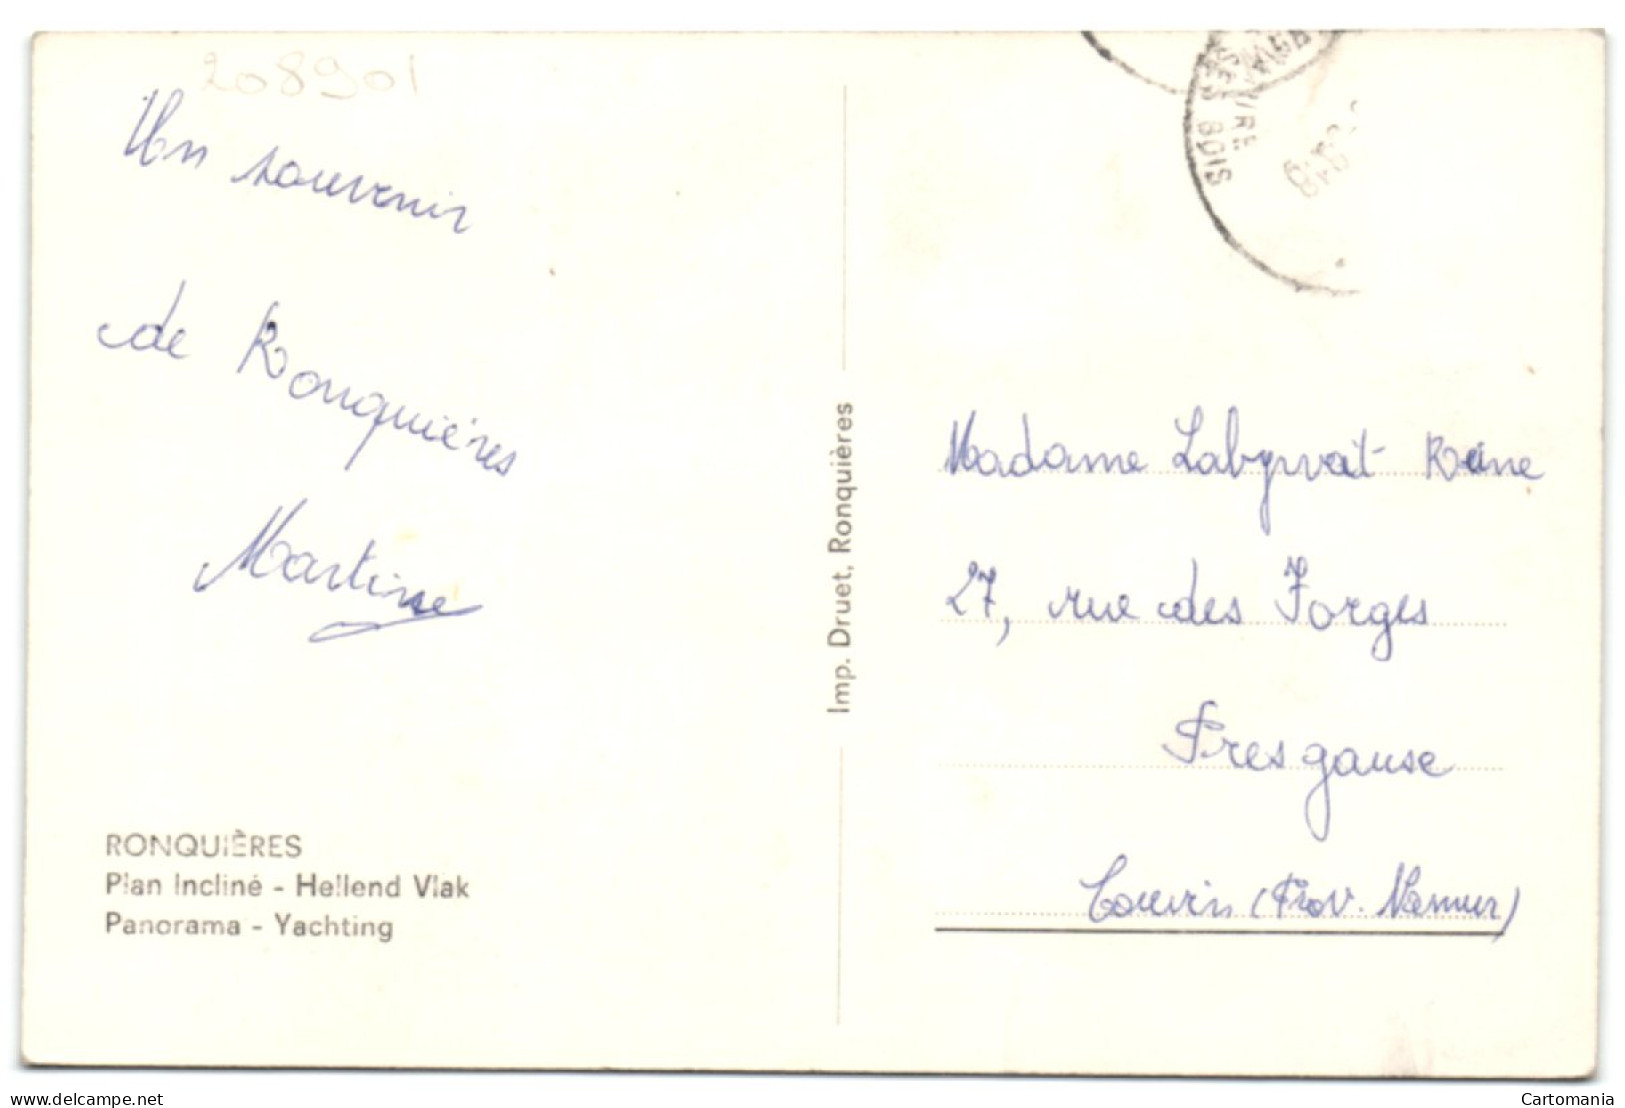 208901
Un souvenir
de Ronquières
Martine
RONQUIÈRES
Plan Incliné - Hellend Vlak
Panorama - Yachting
Imp. Druet, Ronquières
SES BOIS
Madame Labyvat Reine
27, rue des Forges
Presgause
Couvin (Prov. Namur)
www.delcampe.net
Cartomania